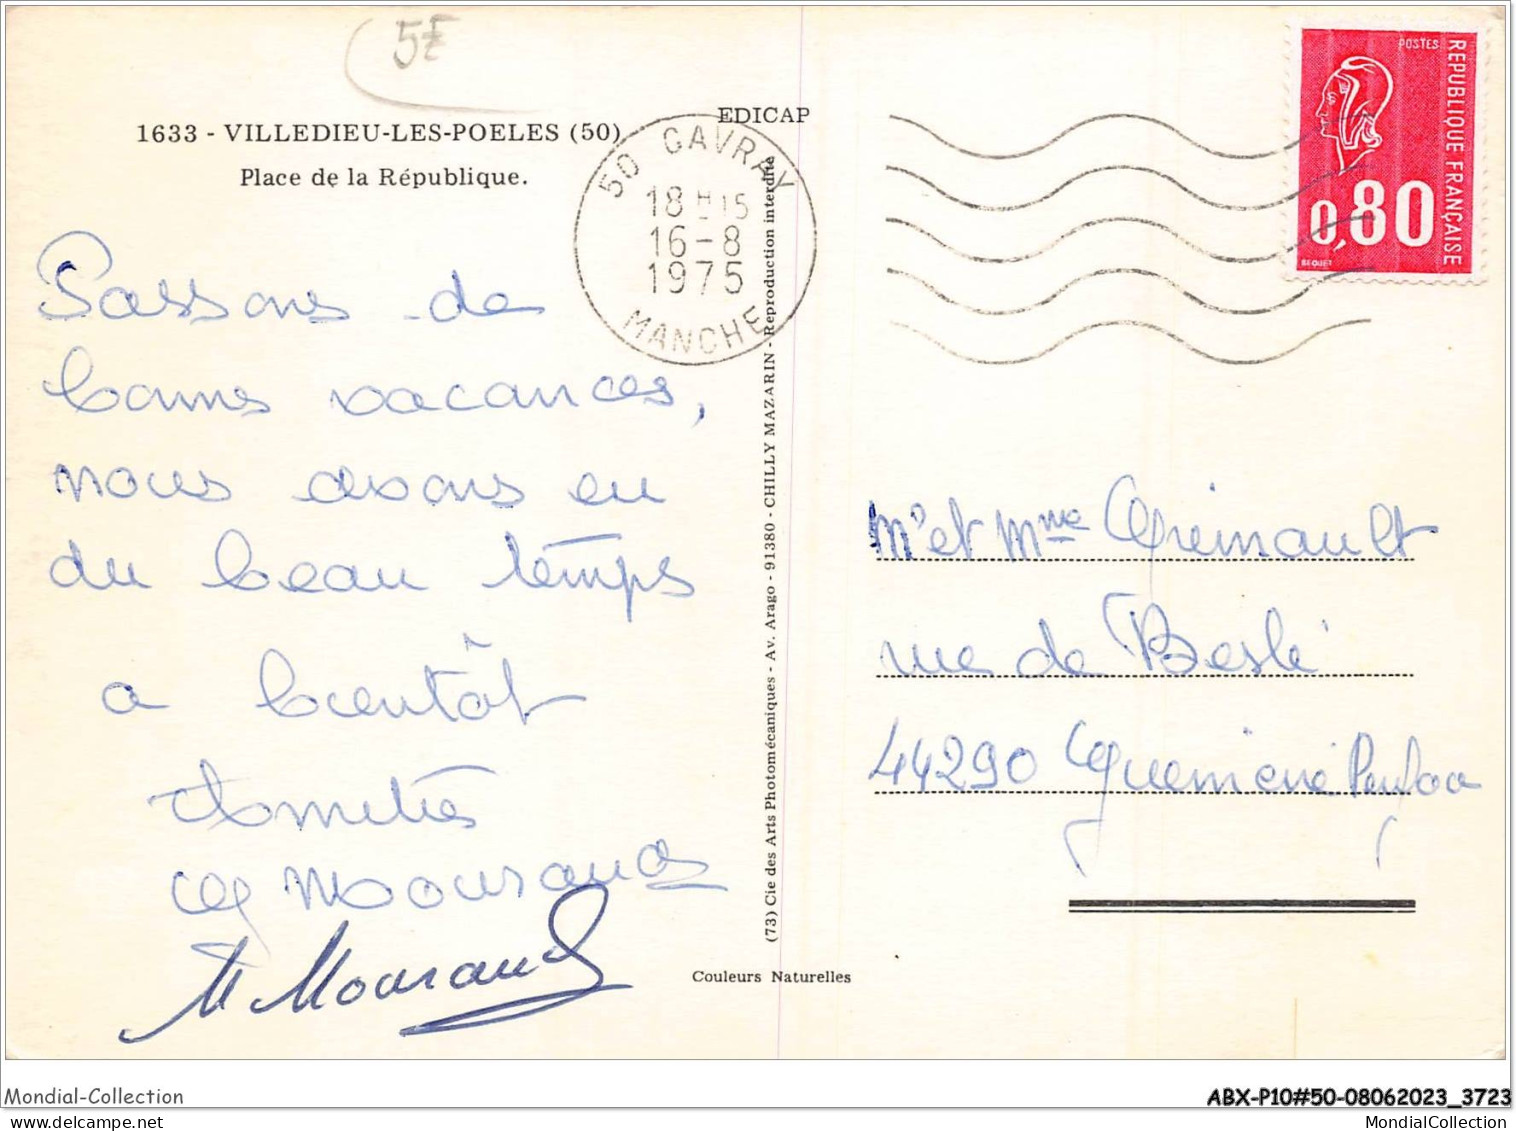 5F
1633 - VILLEDIEU-LES-POELES (50)
Place de la République.
EDICAP
50 GAVRAY
18 H 15
16-8
1975
MANCHE
POSTES
REPUBLIQUE FRANÇAISE
0,80
BEQUET
Passons de
bonnes vacances,
nous avons eu
du beau temps
a bientôt
Amitiés
Mourand
M Mourand
(73) Cie des Arts Photomécaniques - Av. Arago - 91380 - CHILLY MAZARIN - Reproduction interdite
Couleurs Naturelles
Mr et Mme Grimault
rue de Beslé
44290 Guemené Penfao
Mondial-Collection
ABX-P10#50-08062023_3723
MondialCollection